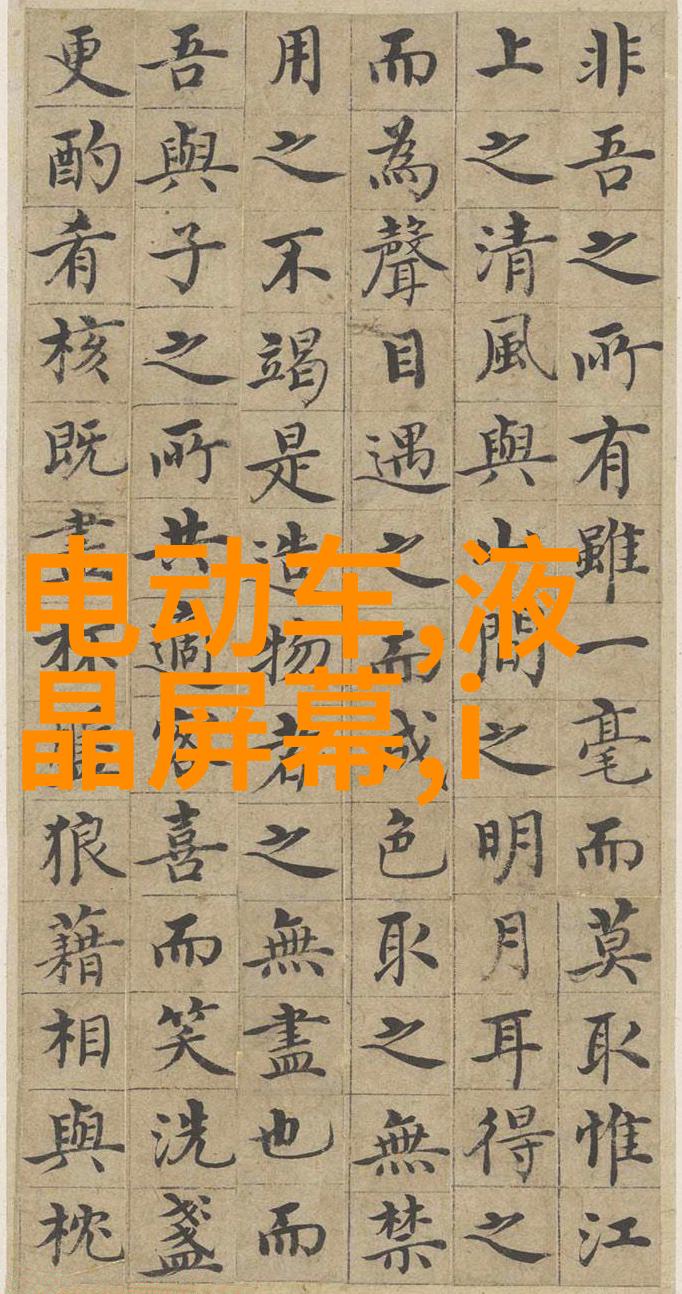 非吾之所有雖一毫而莫取惟江
上之清風與山間之明月耳得之
而為聲目遇之而成色取之無禁
用之不竭是造物者之無盡也而
吾與子之所共適客喜而笑洗盞
更酌肴核既盡杯盤狼藉相與枕
电动车,液
晶屏幕,i